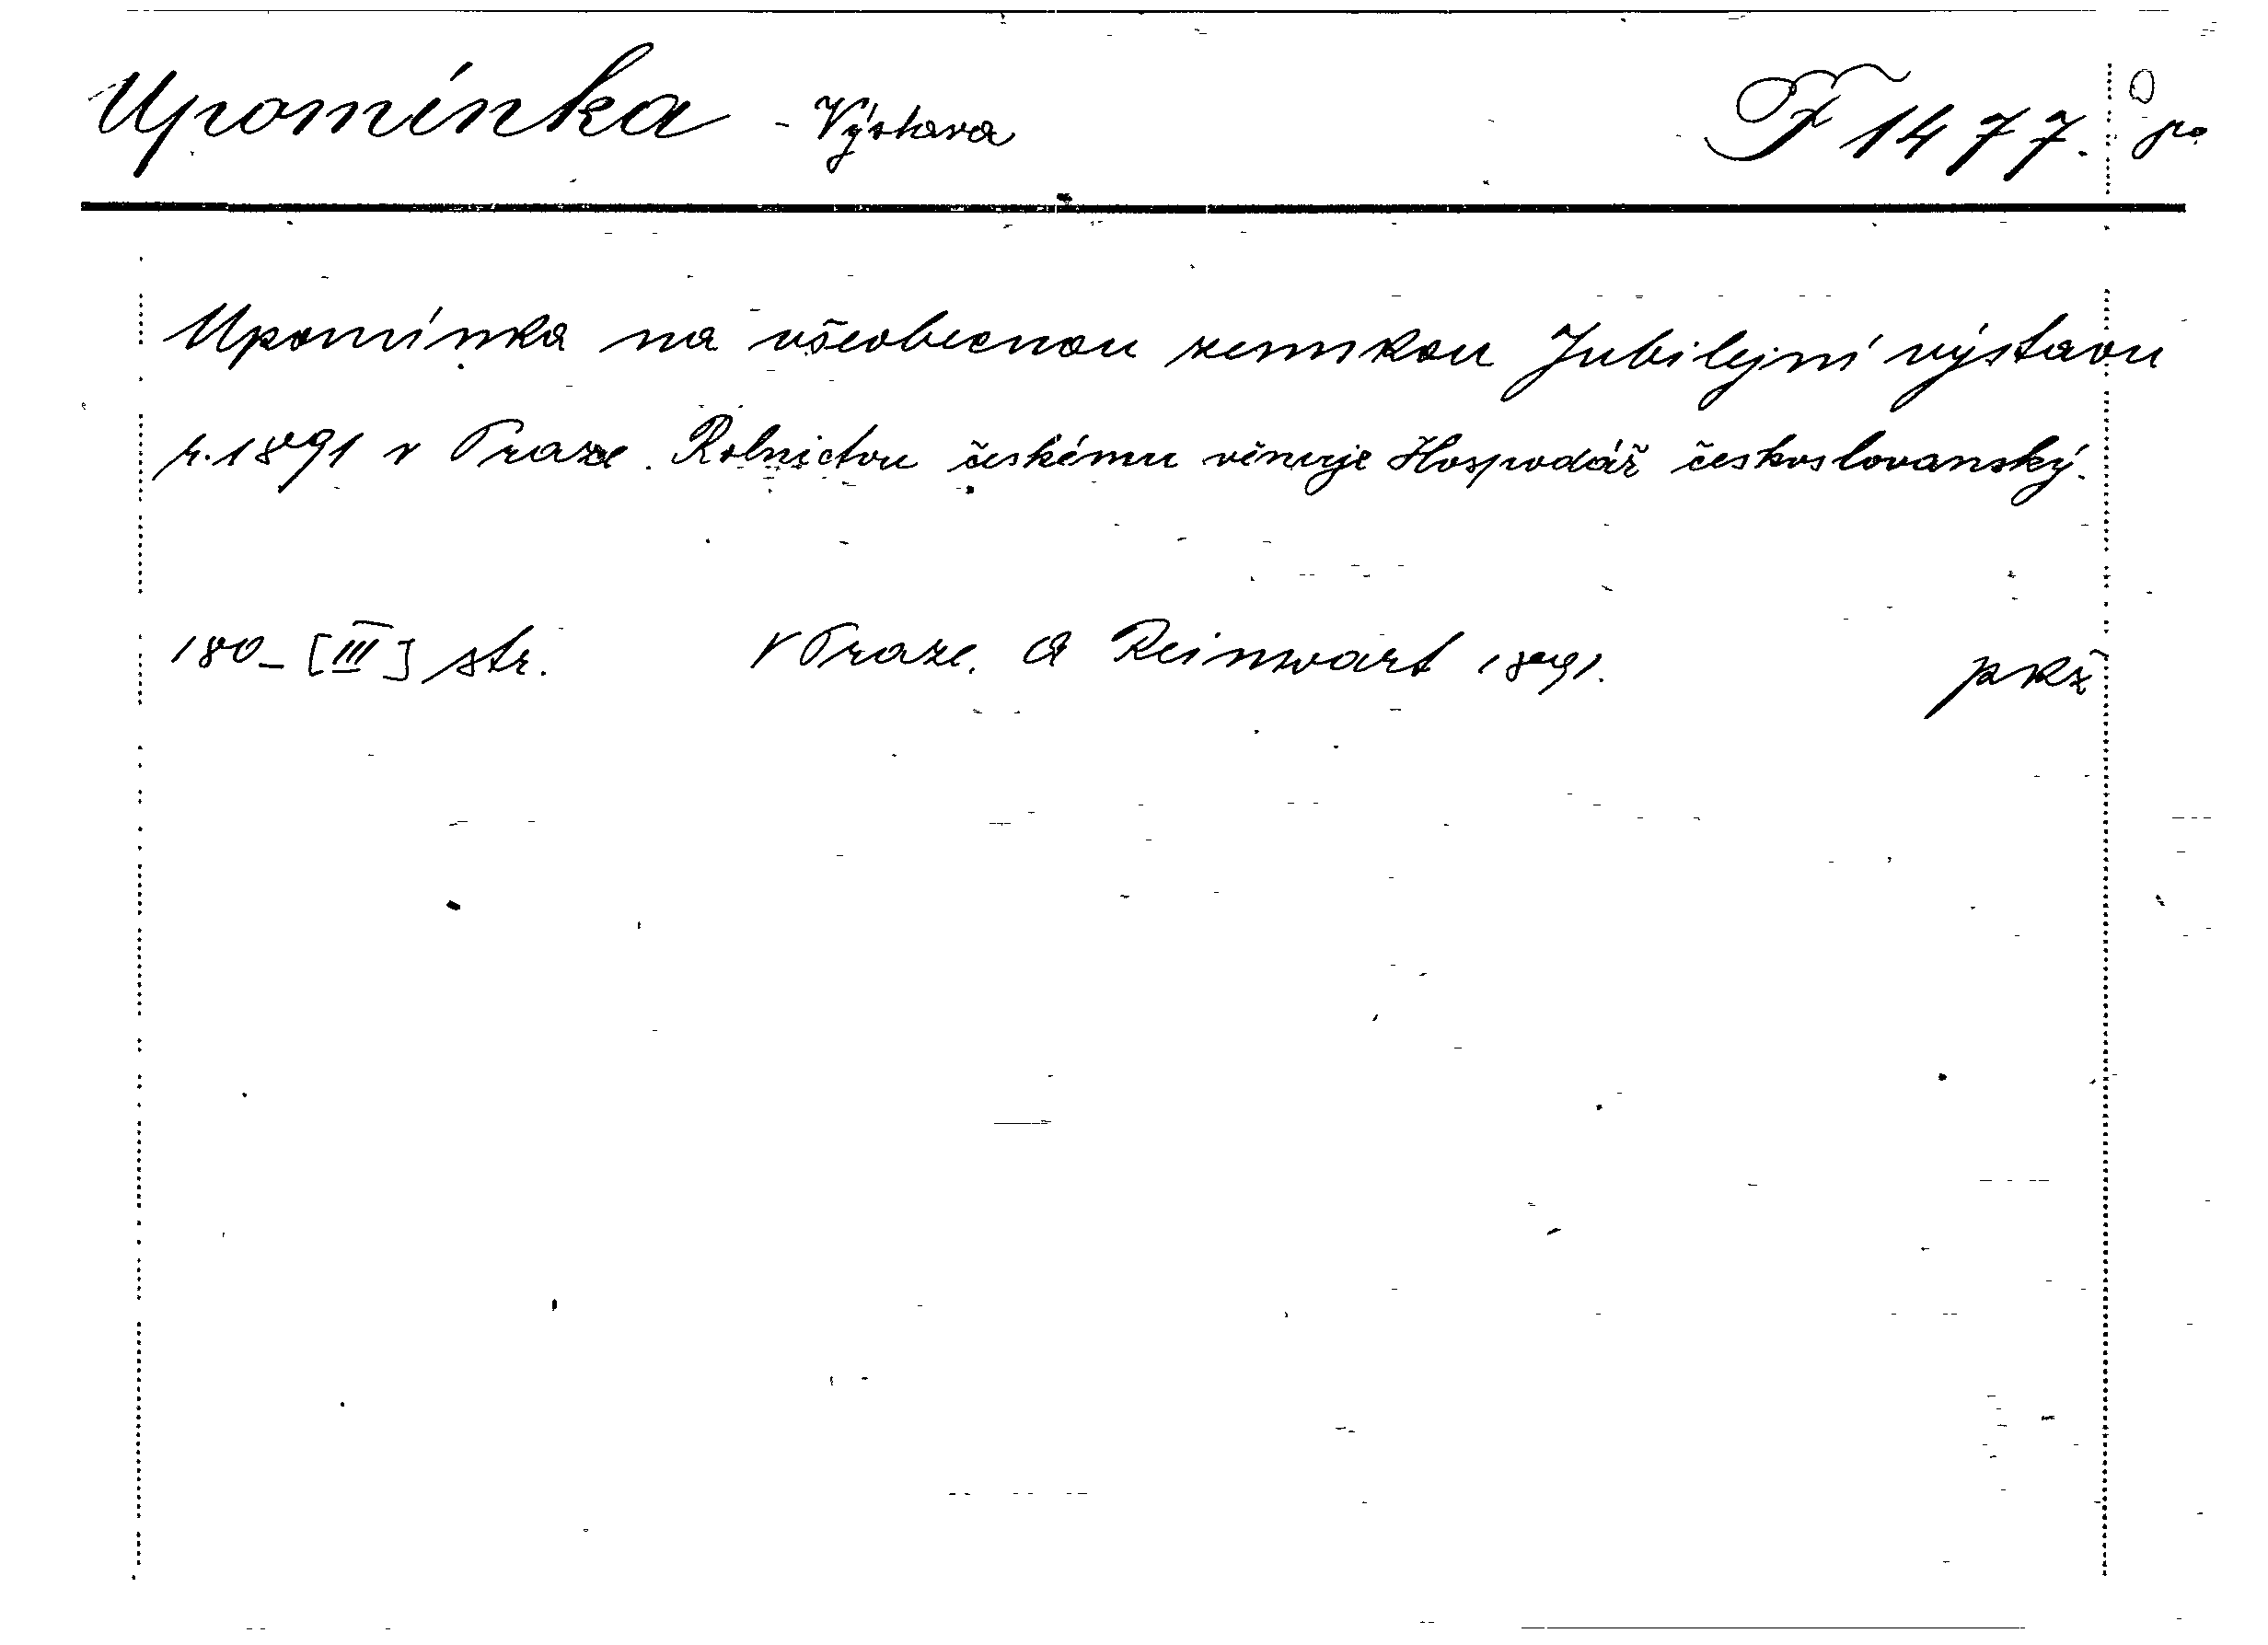 Upomínka - Výstava F 1477.
Upomínka na všeobecnou zemskou Jubilejní výstavu
r. 1891 v Praze. Rolnictvu českému věnuje Hospodář českoslovanský.
180 - [III] str. V Praze. A Reinwart 1891. pkž